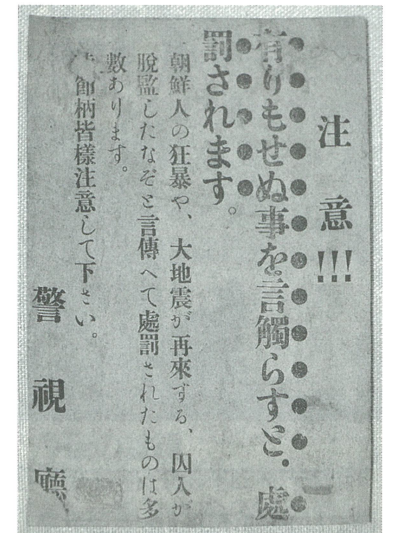 注意!!!
有りもせぬ事を言觸らすと、處
罰されます。
朝鮮人の狂暴や、大地震が再來する、囚人が
脫監したなぞと言傳へて處罰されたものは多
數あります。
時節柄皆樣注意して下さい。
警視廳